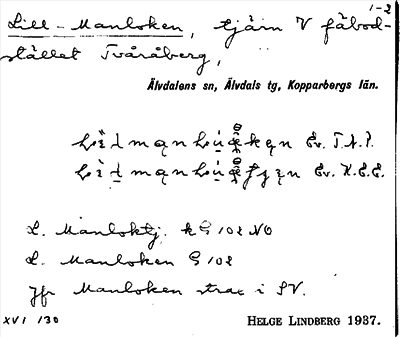 1-2
Lill-Manloken, tjärn V fäbod-
stället Tvåråberg,
Älvdalens sn, Älvdals tg, Kopparbergs län.
Ev.
Ev. K.E.E.
L. Manloktj. kG 102 NO
L. Manloken G 102
Jfr Manloken strax i SV.
XVI 130
HELGE LINDBERG 1937.